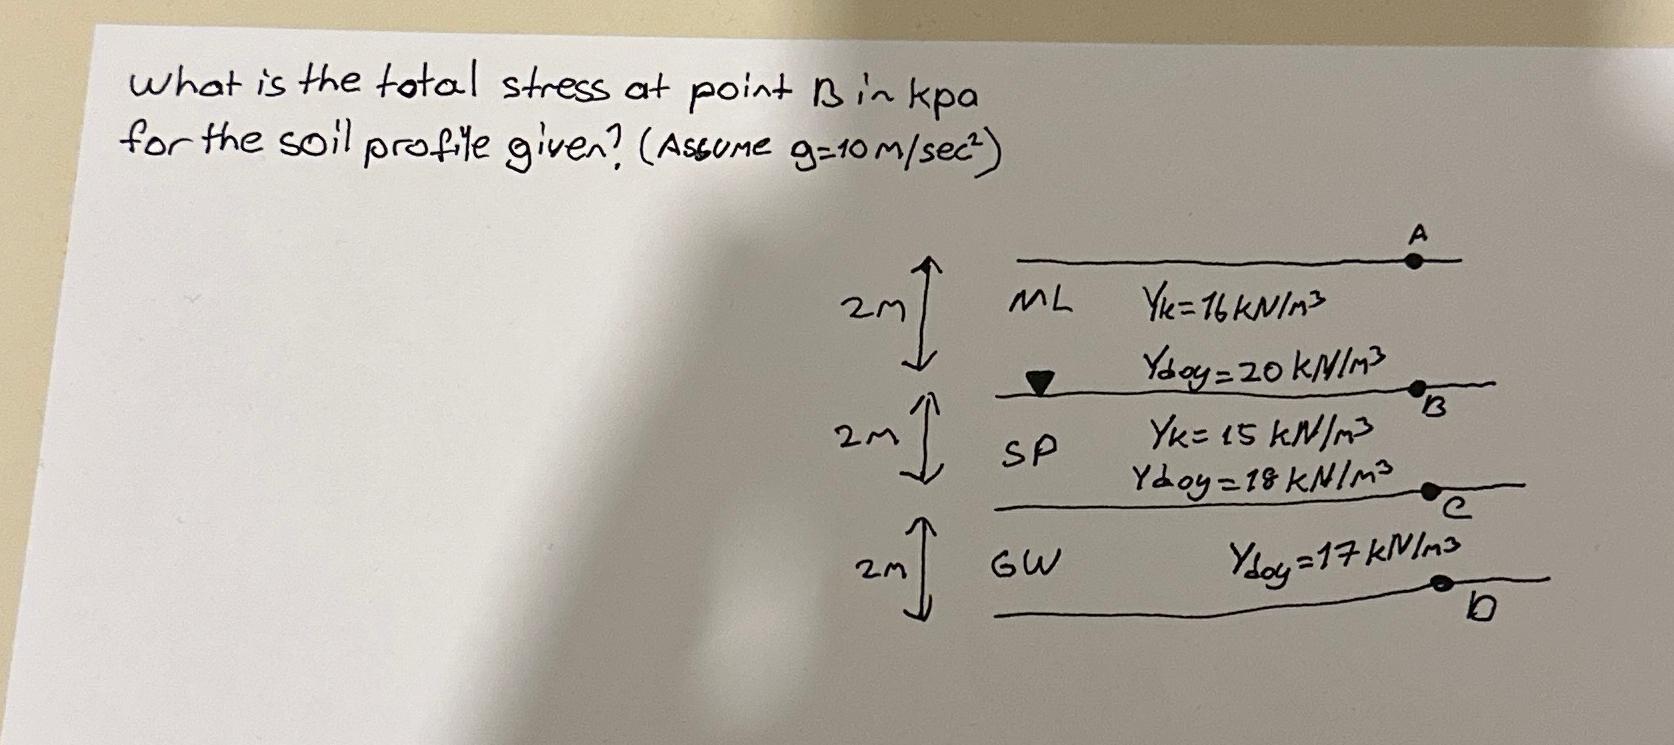 What is the total stress at point B in kpa
for the soil profile given? (Assume g=10 m/sec²)
A
2m ML γk=16 kN/m³
γdoy=20 kN/m³
B
2m SP γk=15 kN/m³
γdoy=18 kN/m³
C
2m GW γdoy=17 kN/m³
D